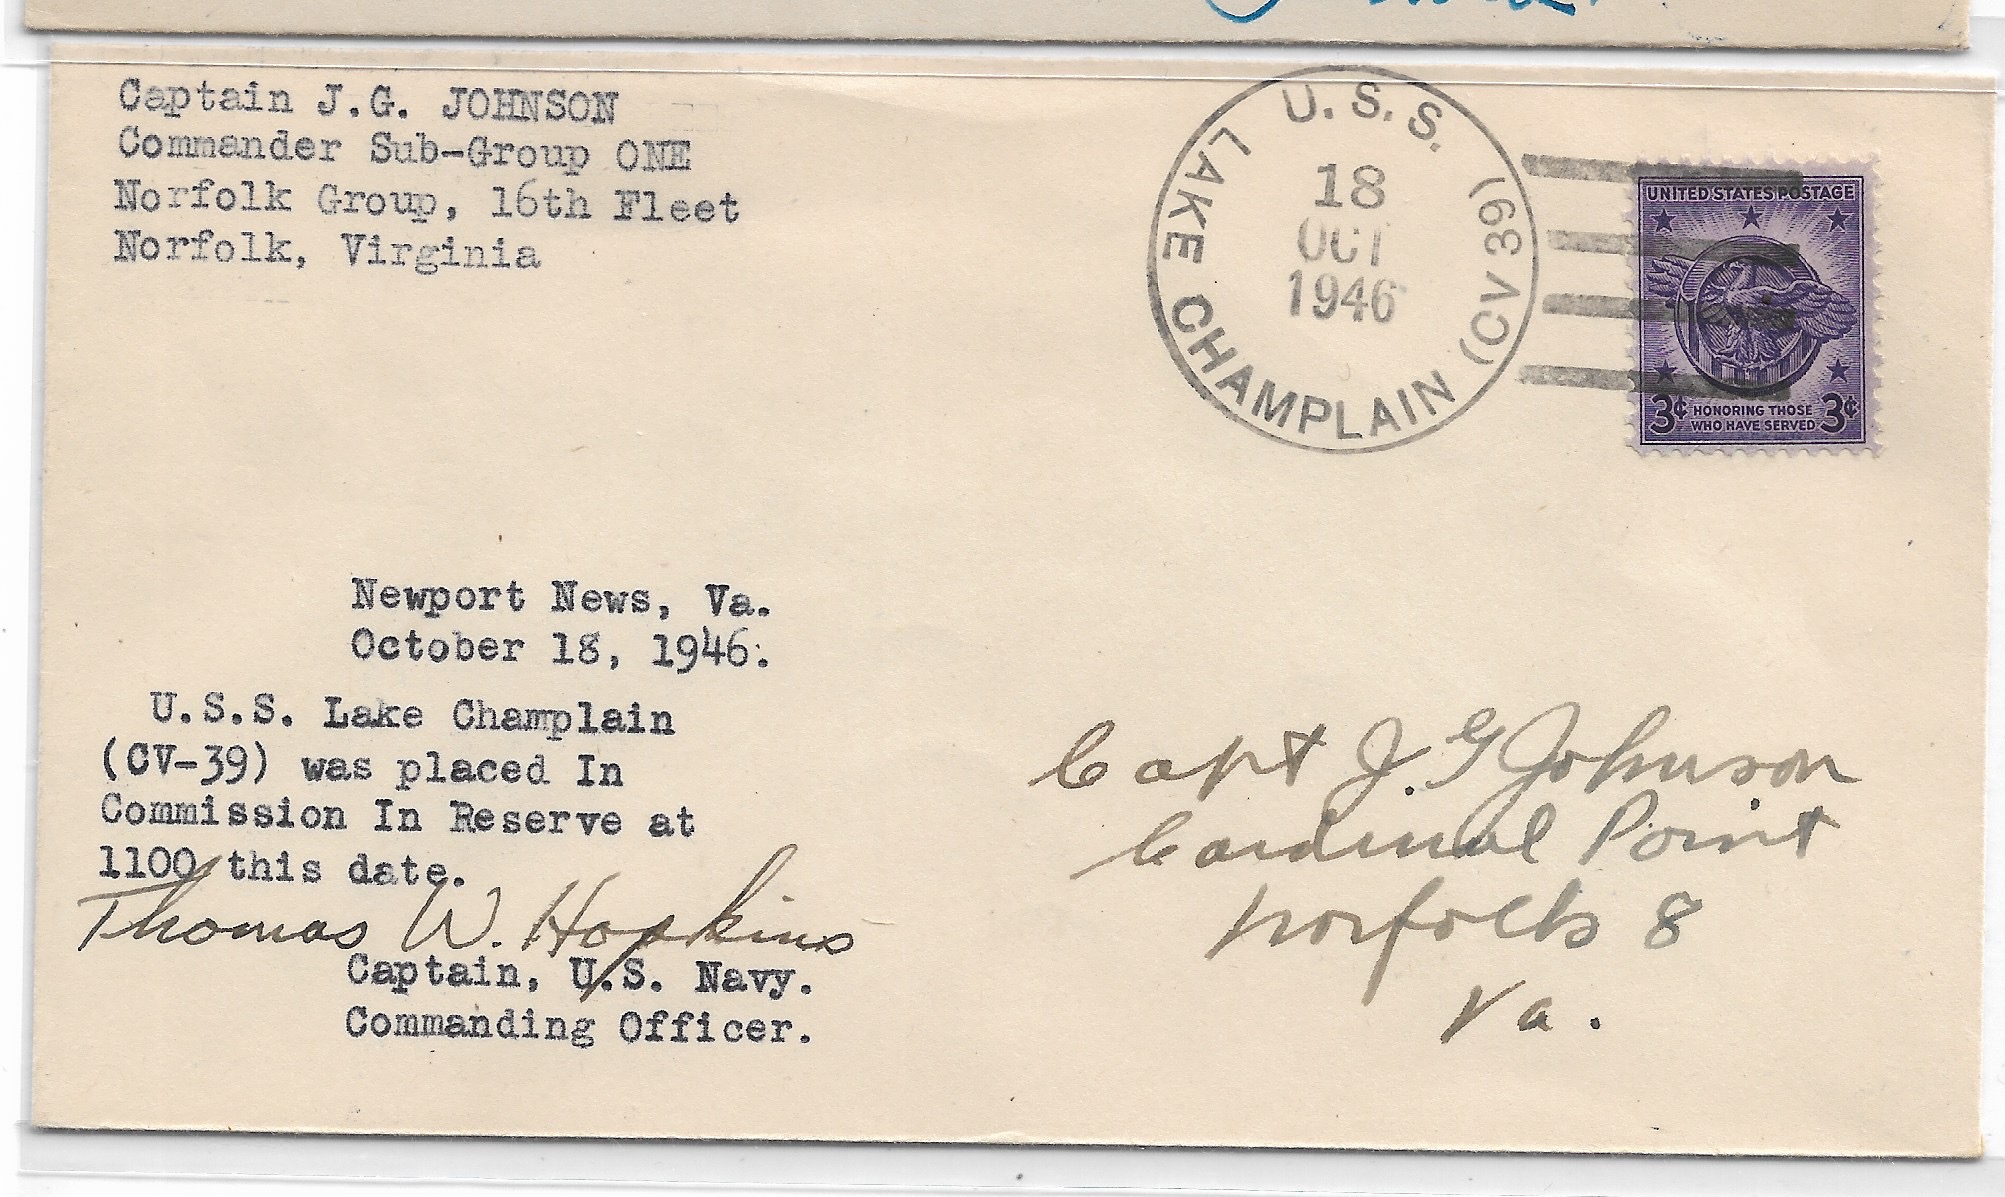 Captain J.G. JOHNSON
Commander Sub-Group ONE
Norfolk Group, 16th Fleet
Norfolk, Virginia
U.S.S.
LAKE CHAMPLAIN (CV 39)
18
OCT
1946
UNITED STATES POSTAGE
3¢ HONORING THOSE 3¢
WHO HAVE SERVED
Newport News, Va.
October 18, 1946.
U.S.S. Lake Champlain
(CV-39) was placed In
Commission In Reserve at
1100 this date.
Thomas W. Hopkins
Captain, U.S. Navy.
Commanding Officer.
Capt J. G Johnson
Cardinal Point
Norfolk 8
Va.